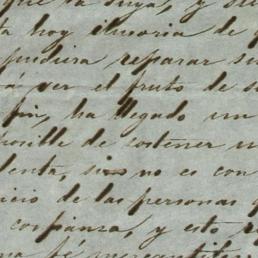 que la suya, y su
ta hoy ilusoria de
pudiera reparar su
á ver el fruto de s
fin, ha llegado un
posible de sostener u
denta, sino es con
icio de las personas q
confianza, y esto